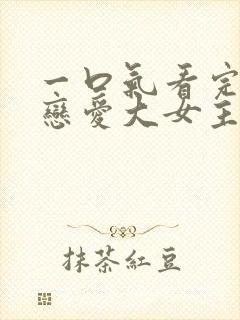 一口氣看完
戀愛大女主
抹茶紅豆